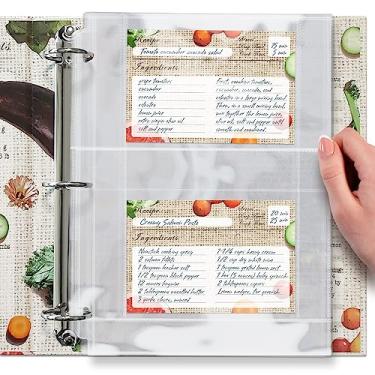 Recipe
Tomato cucumber avocado salad
15 min
5 min
Ingredients
grape tomatoes
cucumber
avocado
cilantro
lemon juice
extra virgin olive oil
salt and pepper
First, combine tomatoes,
cucumber, avocado, and
cilantro in a large mixing bowl.
Then, in a small bowl,
mix together the lemon juice,
olive oil, salt and pepper until
smooth and combined.
Recipe
Creamy Salmon Pasta
20 min
25 min
Ingredients
Nonstick cooking spray
2 salmon fillets
1 teaspoon kosher salt
1/2 teaspoon black pepper
12 ounces linguine
2 tablespoons unsalted butter
3 garlic cloves, minced
1-1/4 cups heavy cream
1/2 cup dry white wine
1 teaspoon grated lemon zest
1 box (5 ounces) baby spinach
2 tablespoons capers
Lemon wedges, for garnish